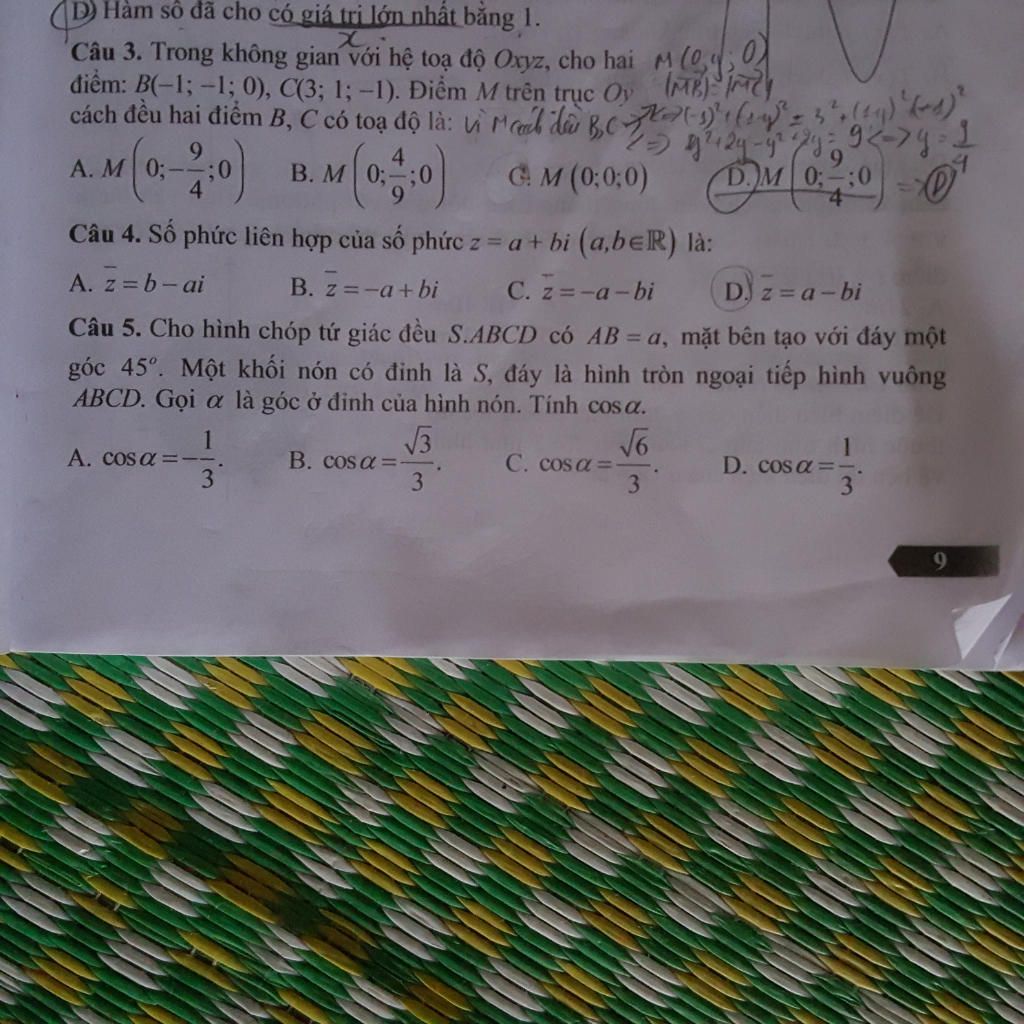 D. Hàm số đã cho có giá trị lớn nhất bằng 1.
Câu 3. Trong không gian với hệ toạ độ Oxyz, cho hai M(0;y;0)
điểm: B(−1; −1; 0), C(3; 1; −1). Điểm M trên trục Oy |MB|=|MC|
cách đều hai điểm B, C có toạ độ là: Vì M cách đều B,C
A. M(0;−9/4;0) B. M(0;4/9;0) C. M(0;0;0) D. M(0;9/4;0) => D
Câu 4. Số phức liên hợp của số phức z = a + bi (a,b∈ℝ) là:
A. z̅ = b − ai B. z̅ = −a + bi C. z̅ = −a − bi D. z̅ = a − bi
Câu 5. Cho hình chóp tứ giác đều S.ABCD có AB = a, mặt bên tạo với đáy một
góc 45°. Một khối nón có đỉnh là S, đáy là hình tròn ngoại tiếp hình vuông
ABCD. Gọi α là góc ở đỉnh của hình nón. Tính cosα.
A. cosα = −1/3. B. cosα = √3/3. C. cosα = √6/3. D. cosα = 1/3.
9